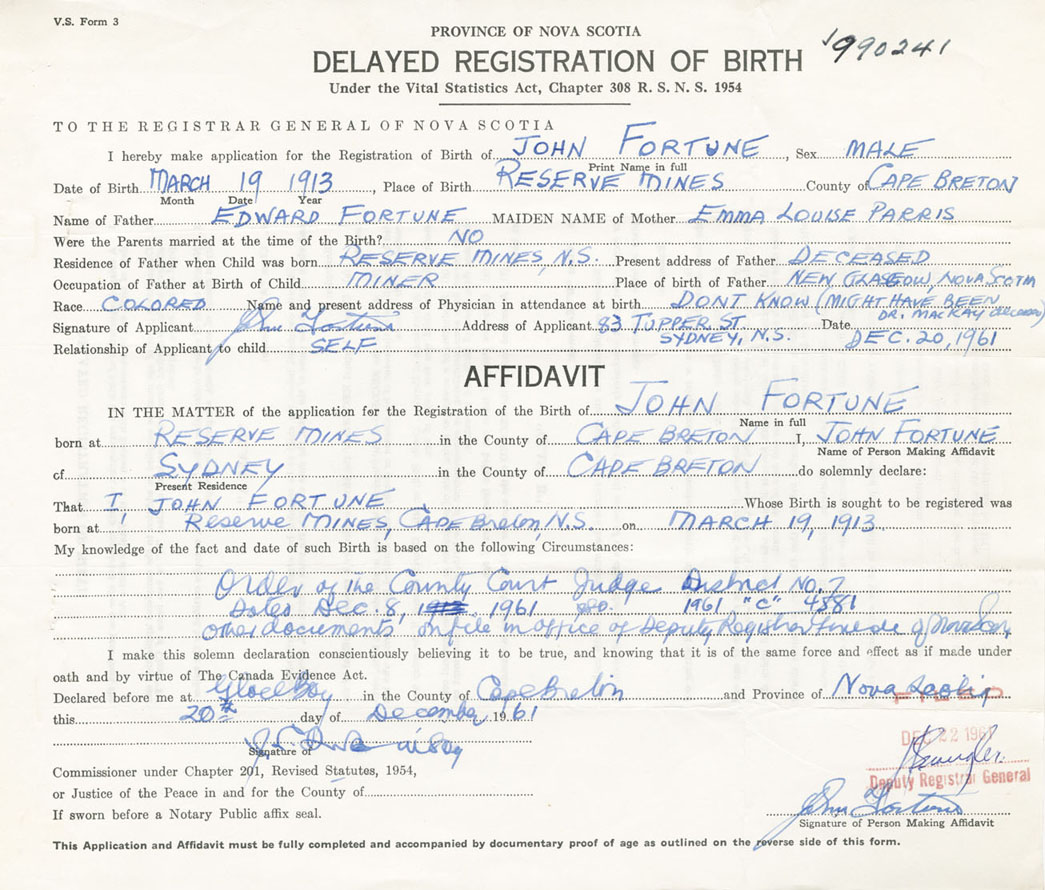 V.S. Form 3
PROVINCE OF NOVA SCOTIA
1990241
DELAYED REGISTRATION OF BIRTH
Under the Vital Statistics Act, Chapter 308 R. S. N. S. 1954
TO THE REGISTRAR GENERAL OF NOVA SCOTIA
I hereby make application for the Registration of Birth of JOHN FORTUNE, Sex MALE
Print Name in full
Date of Birth MARCH 19 1913, Place of Birth RESERVE MINES County of CAPE BRETON
Month Date Year
Name of Father EDWARD FORTUNE MAIDEN NAME of Mother EMMA LOUISE PARRIS
Were the Parents married at the time of the Birth? NO
Residence of Father when Child was born RESERVE MINES, N.S. Present address of Father DECEASED
Occupation of Father at Birth of Child MINER Place of birth of Father NEW GLASGOW, NOVA SCOTIA
Race COLORED Name and present address of Physician in attendance at birth DONT KNOW (MIGHT HAVE BEEN
DR. MACKAY deceased)
Signature of Applicant John Fortune Address of Applicant 83 TUPPER ST Date
SYDNEY, N.S. DEC. 20, 1961
Relationship of Applicant to child SELF
AFFIDAVIT
IN THE MATTER of the application for the Registration of the Birth of JOHN FORTUNE
Name in full
born at RESERVE MINES in the County of CAPE BRETON I, JOHN FORTUNE
Name of Person Making Affidavit
of SYDNEY in the County of CAPE BRETON do solemnly declare:
Present Residence
That I, JOHN FORTUNE Whose Birth is sought to be registered was
born at Reserve MINES, CAPE Breton, N.S. on MARCH 19, 1913
My knowledge of the fact and date of such Birth is based on the following Circumstances:
Order of the County Court Judge District No. 7
Dated Dec. 8, 1961 1961 "C" 4581
other documents on file in office of Deputy Registrar
I make this solemn declaration conscientiously believing it to be true, and knowing that it is of the same force and effect as if made under
oath and by virtue of The Canada Evidence Act.
Declared before me at Glace Bay in the County of Cape Breton and Province of Nova Scotia
FILED
this 20th day of December 1961
DEC 22 1961
Signature of
Deputy Registrar General
Commissioner under Chapter 201, Revised Statutes, 1954,
or Justice of the Peace in and for the County of
If sworn before a Notary Public affix seal.
John Fortune
Signature of Person Making Affidavit
This Application and Affidavit must be fully completed and accompanied by documentary proof of age as outlined on the reverse side of this form.